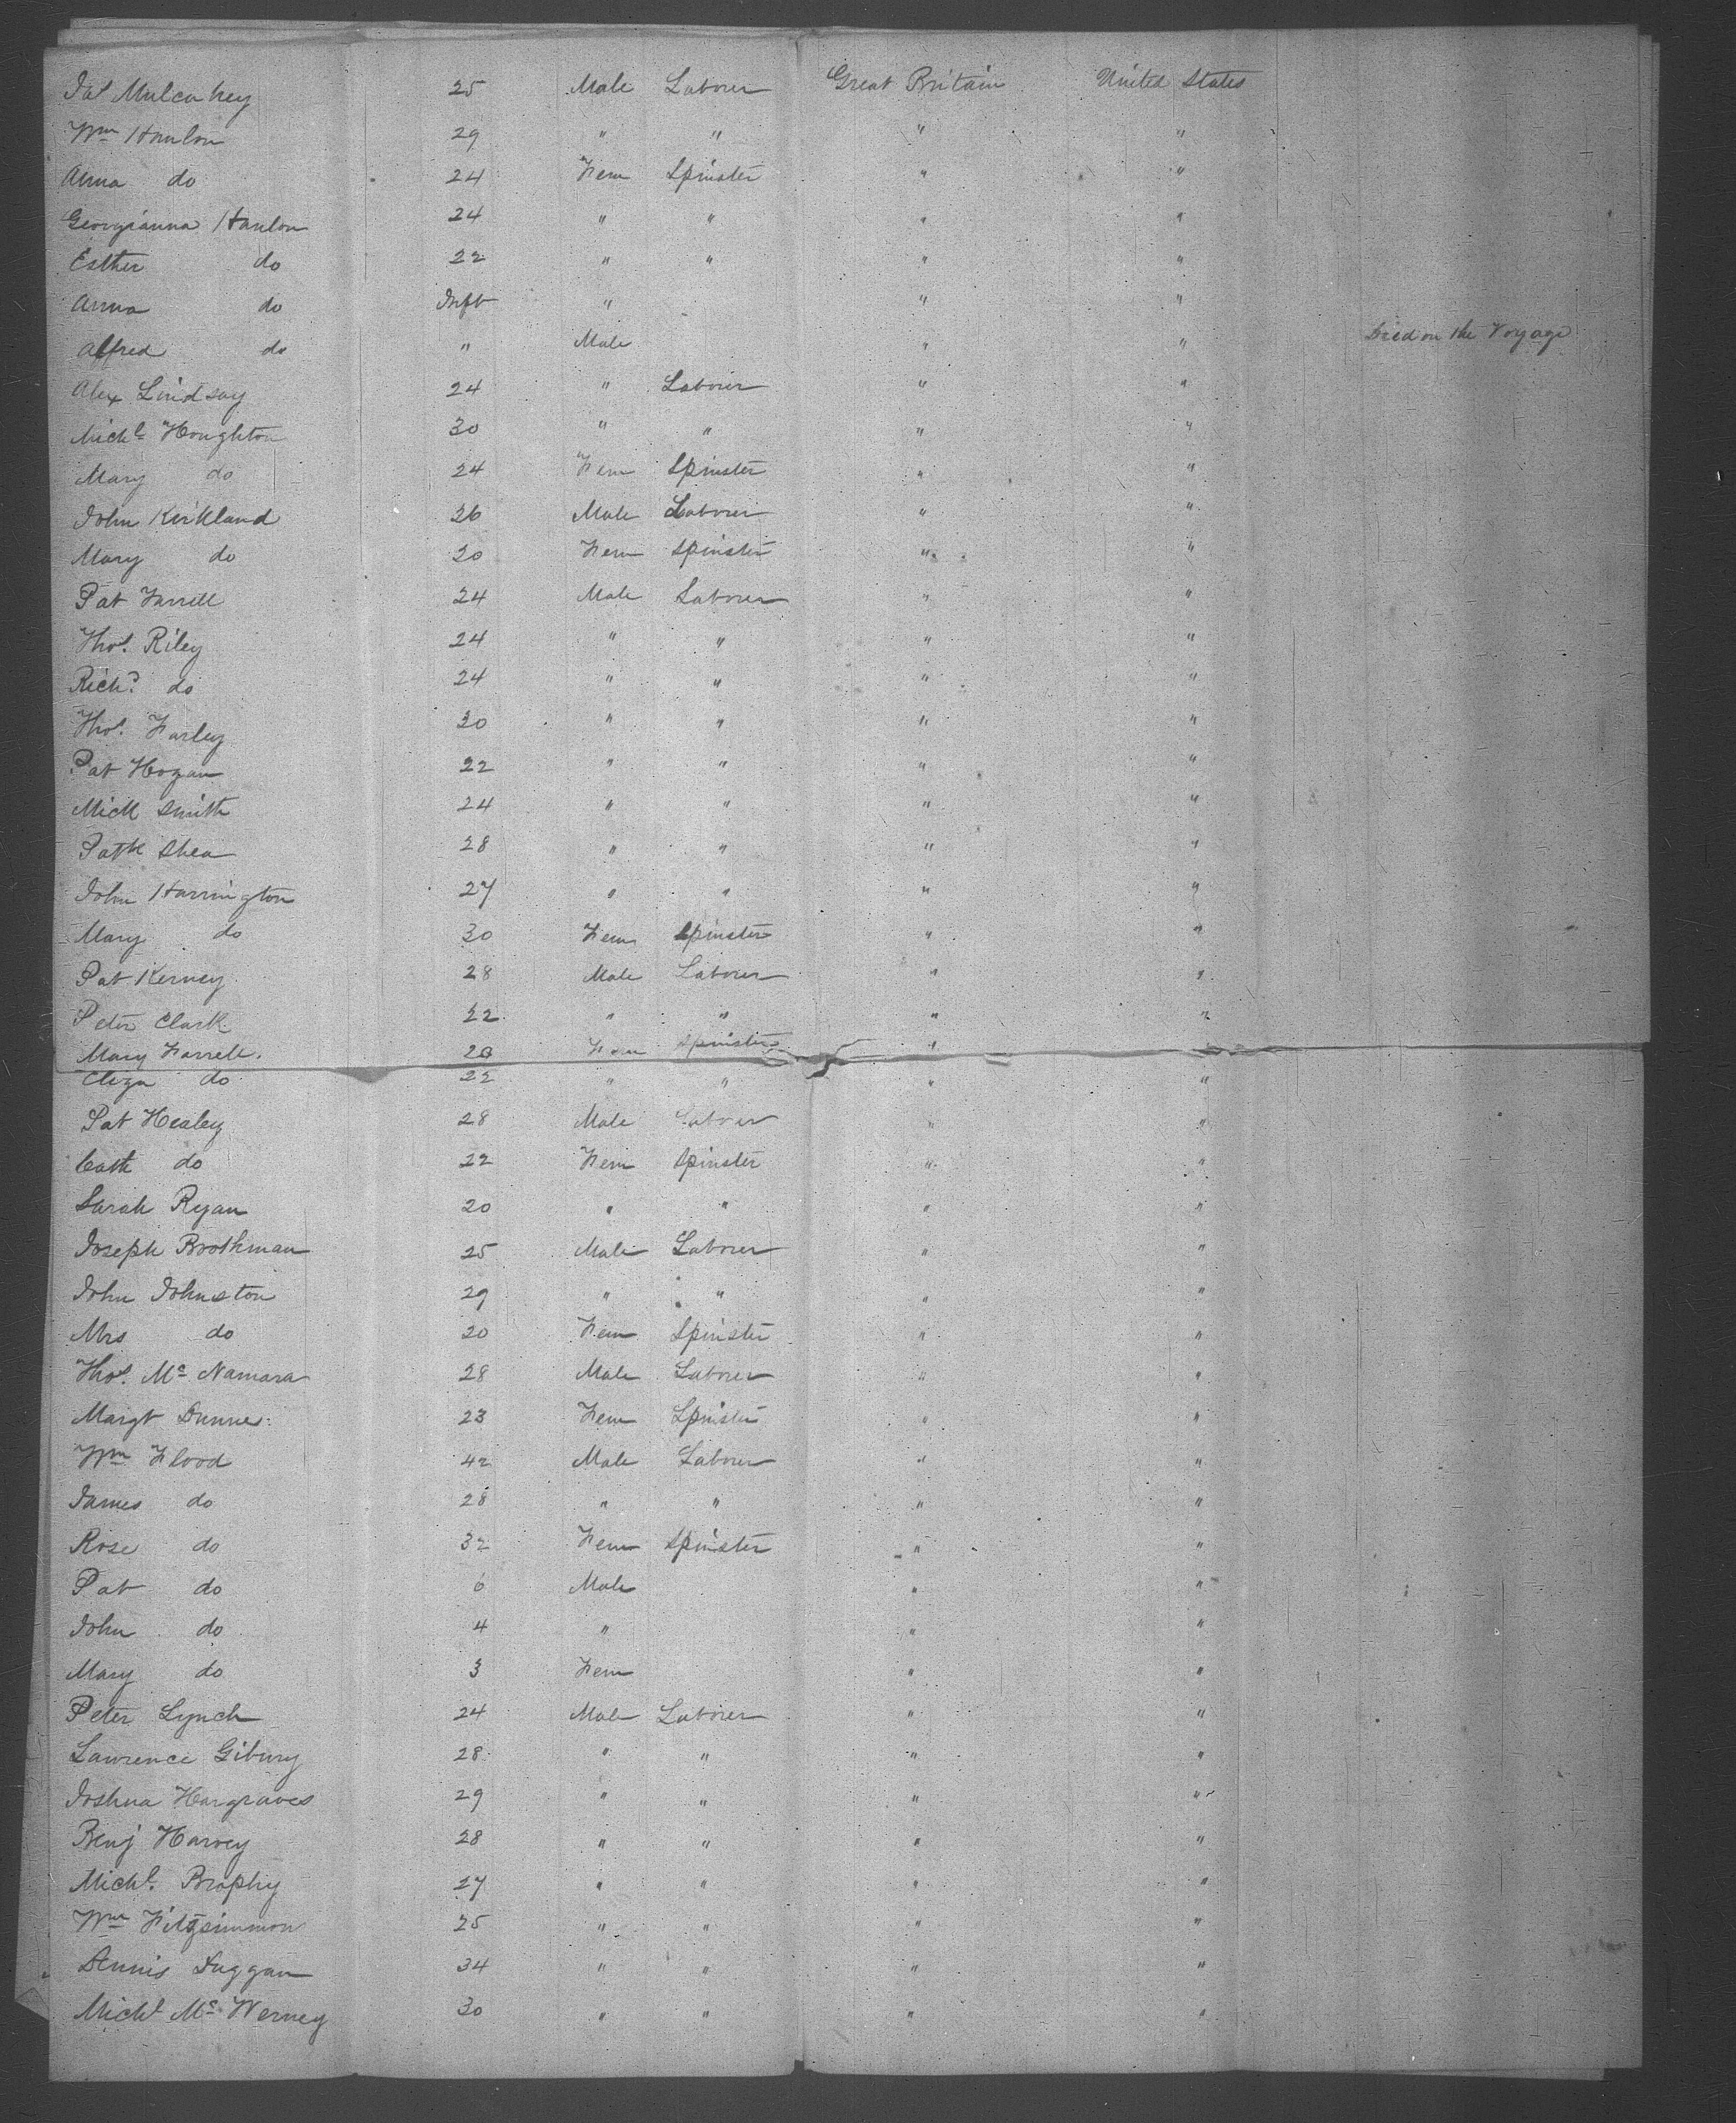 Jas Mulcahey 25 Male Laborer Great Britain United States
Wm Hanlon 29 " " " "
Anna do 24 Fem Spinster " "
Georgianna Hanlon 24 " " " "
Esther do 22 " " " "
Anna do Inft " " "
Alfred do " Male " " Died on the Voyage
Alex Lindsay 24 " Laborer " "
Michl Houghton 30 " " " "
Mary do 24 Fem Spinster " "
John Kirkland 26 Male Laborer " "
Mary do 20 Fem Spinster " "
Pat Farrell 24 Male Laborer " "
Thos. Riley 24 " " " "
Richd do 24 " " " "
Thos. Farley 20 " " " "
Pat Hogan 22 " " " "
Michl Smith 24 " " " "
Patk Shea 28 " " " "
John Harrington 27 " " " "
Mary do 30 Fem Spinster " "
Pat Kerney 28 Male Laborer " "
Peter Clark 22 " " " "
Mary Farrell. 20 Fem Spinster " "
Eliza do 22 " " " "
Pat Healey 28 Male Laborer " "
Cath do 22 Fem Spinster " "
Sarah Ryan 20 " " " "
Joseph Boothman 25 Male Laborer " "
John Johnston 29 " " " "
Mrs do 20 Fem Spinster " "
Thos. Mc Namara 28 Male Laborer " "
Margt Dunne 23 Fem Spinster " "
Wm Flood 42 Male Laborer " "
James do 28 " " " "
Rose do 32 Fem Spinster " "
Pat do 6 Male " "
John do 4 " " "
Mary do 3 Fem " "
Peter Lynch 24 Male Laborer " "
Lawrence Gibury 28 " " " "
Joshua Hargraves 29 " " " "
Benj Harvey 28 " " " "
Michl. Brophy 27 " " " "
Wm Fitzsimmon 25 " " " "
Dennis Duggan 34 " " " "
Michl Mc Werney 30 " " " "